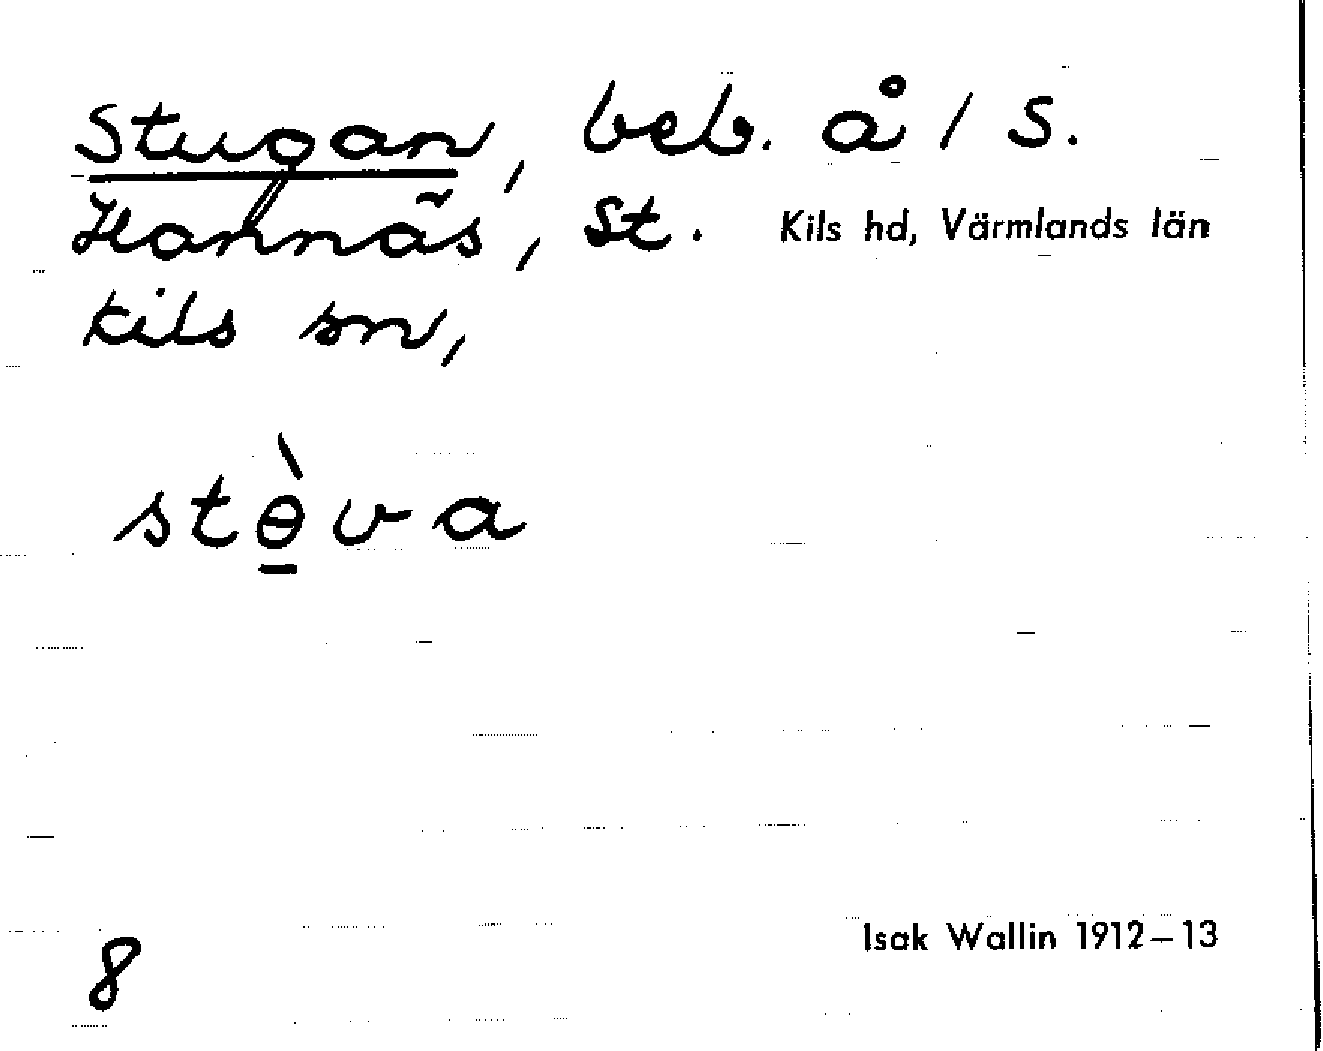 Stugan, beb. å / S.
Hannäs, St. Kils hd, Värmlands län
kils sn,
stɵ̠̀va
8
Isak Wallin 1912–13